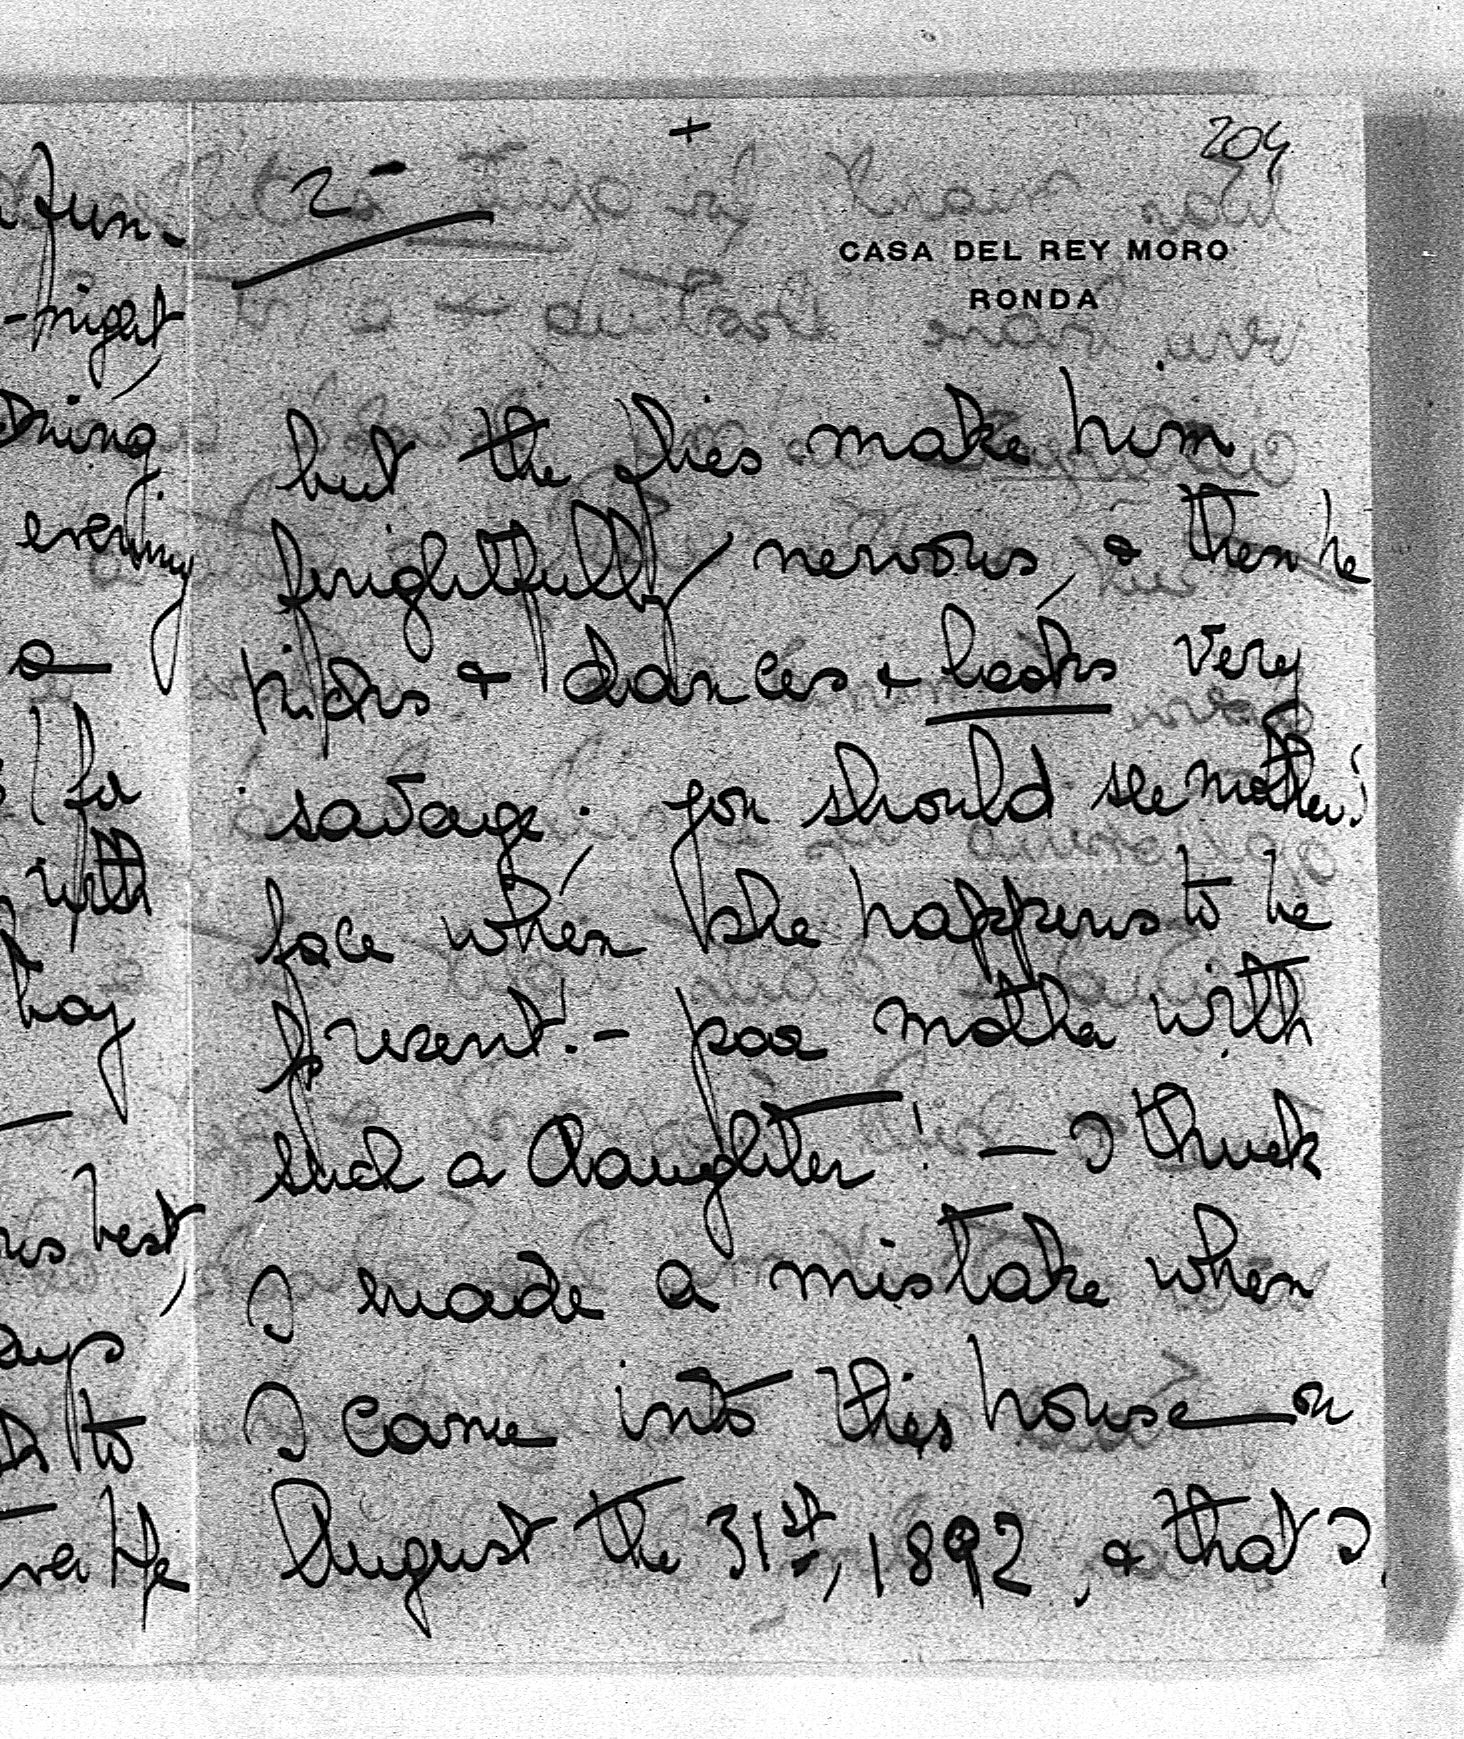 fun-
-night
evening
a
for
with
hay
his best,
days
to
+
204
2-
CASA DEL REY MORO
RONDA
but the flies make him
frightfully nervous, & then he
kicks & dances & looks very
savage. you should see mother's
face when she happens to be
present! - poor mother with
such a daughter! — I think
I made a mistake when
I came into this house on
August the 31st, 1892, & that I